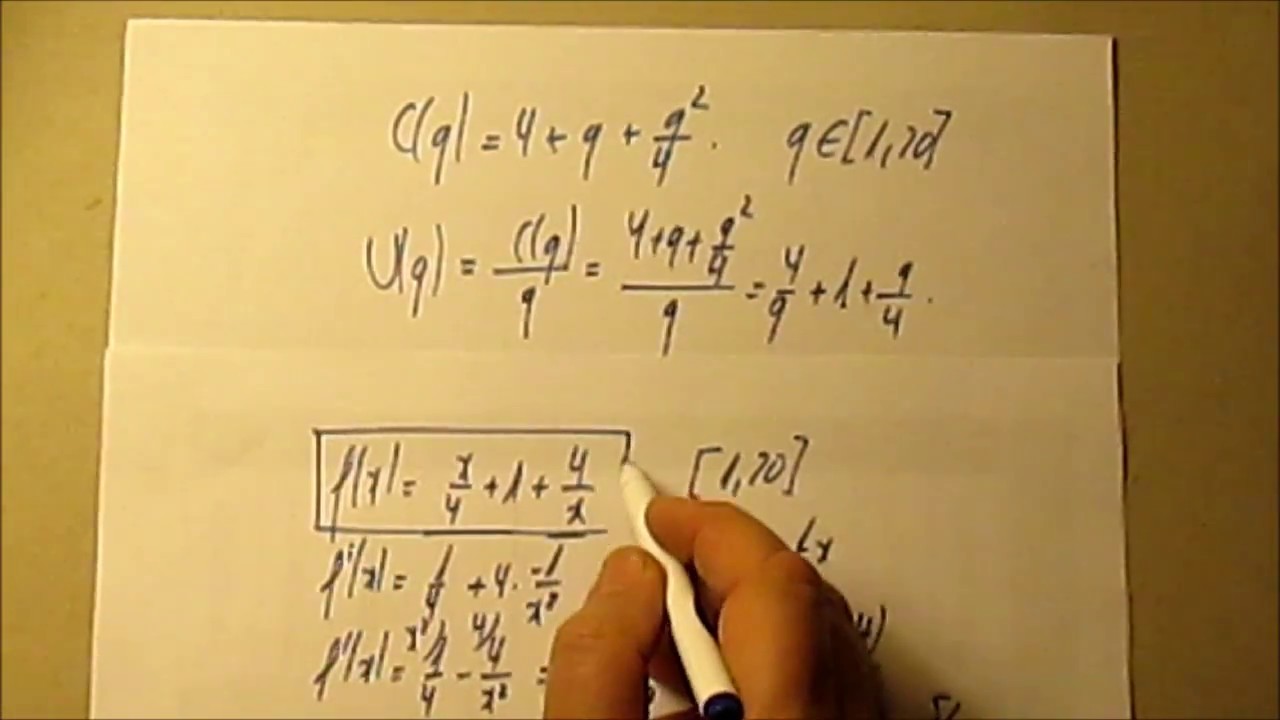 C(q) = 4 + q + q²/4 . q ∈ [1, 10]
U(q) = C(q)/q = (4 + q + q²/4)/q = 4/q + 1 + q/4 .
f(x) = x/4 + 1 + 4/x [1, 10]
f'(x) = 1/4 + 4 · -1/x²
f'(x) = x²/ 1/4 - 4/ 4/x² =